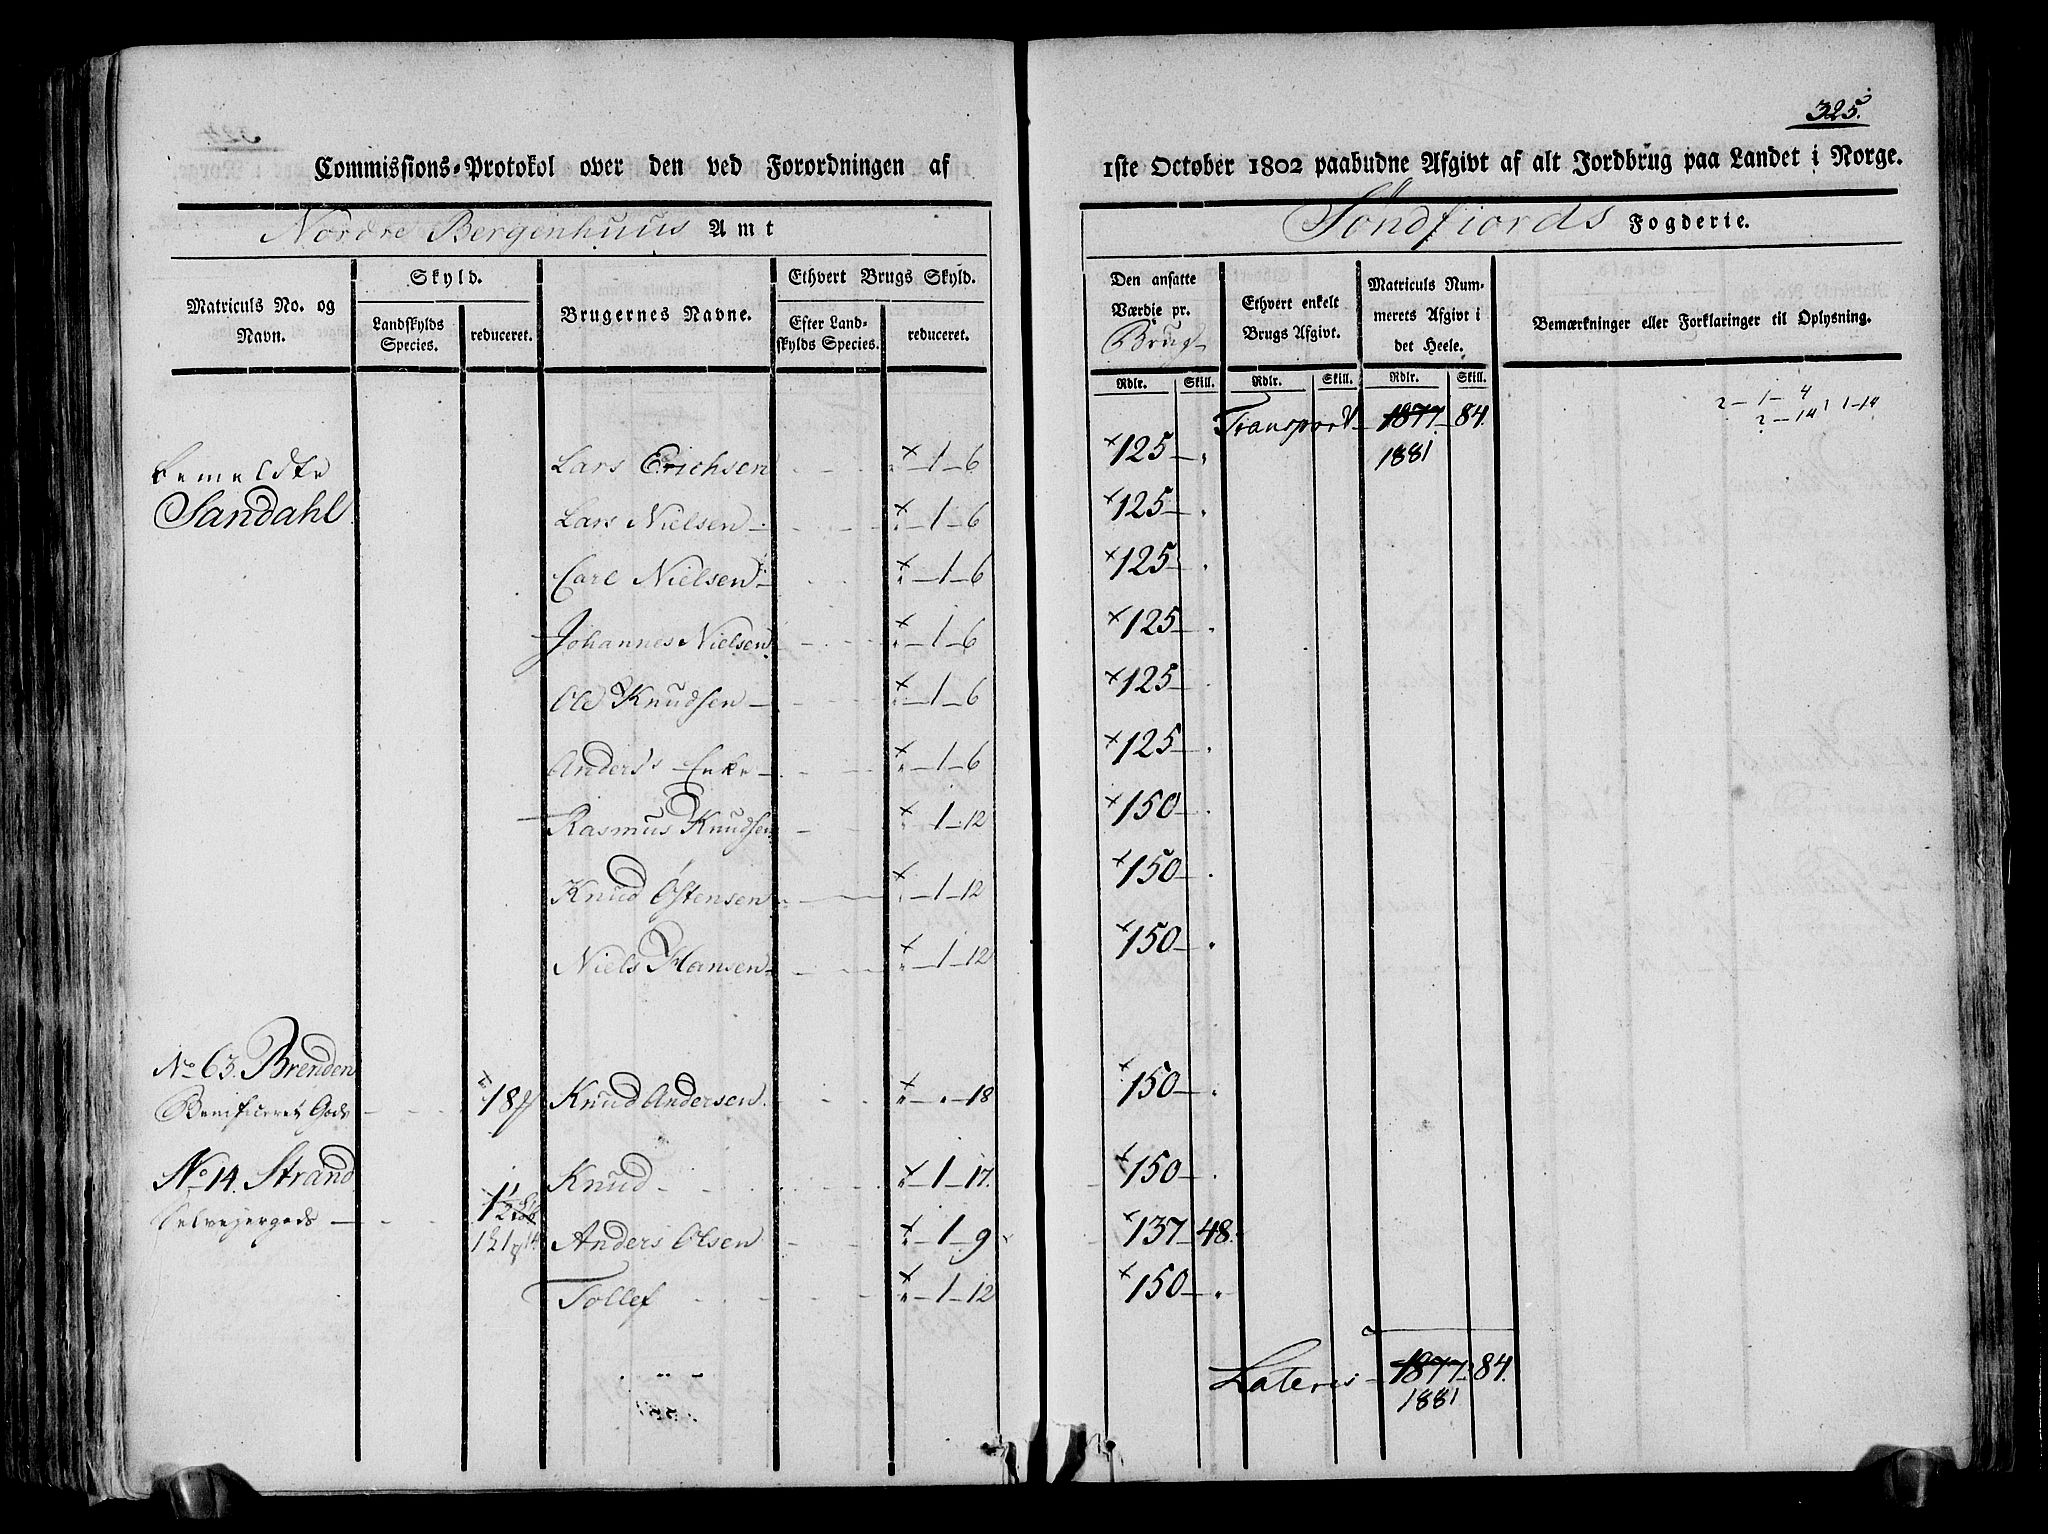 325.
Commissions-Protokol over den ved Forordningen af 1ste October 1802 paabudne Afgivt af alt Jordbrug paa Landet i Norge.
Nordre Bergenhuus Amt
Søndfiords Fogderie.
Matriculs No. og Navn.
Skyld.
Landskylds Species.
reduceret.
Brugernes Navne.
Ethvert Brugs Skyld.
Efter Landskylds Species.
reduceret.
Den ansatte Værdie pr. Brug
Ethvert enkelt Brugs Afgivt.
Matriculs Nummerets Afgivt i det Heele.
Bemærkninger eller Forklaringer til Oplysning.
Rdlr. Skill. Rdlr. Skill. Rdlr. Skill.
Transport 1877 84.
1881
2 - 1 - 4
2 - 14 1 - 14
bemeldte Lars Erichsen 1 - 6 125
Sandahl Lars Nielsen 1 - 6 125
Carl Nielsen 1 - 6 125
Johannes Nielsen 1 - 6 125
Ole Knudsen 1 - 6 125
Anders's Enke 1 - 6 125
Rasmus Knudsen 1 - 12 150
Knud Østensen 1 - 12 150
Niels Hansen 1 - 12 150
No 63. Brenden
Benificeret Gods 18 Knud Andersen 18 150
No 14. Strand Knud 1 - 17. 150
Selveyergods 1 1/2
Anders Olsen 1 - 9 137 48.
Tollef 1 - 12 150
Lateris 1877 84.
1881